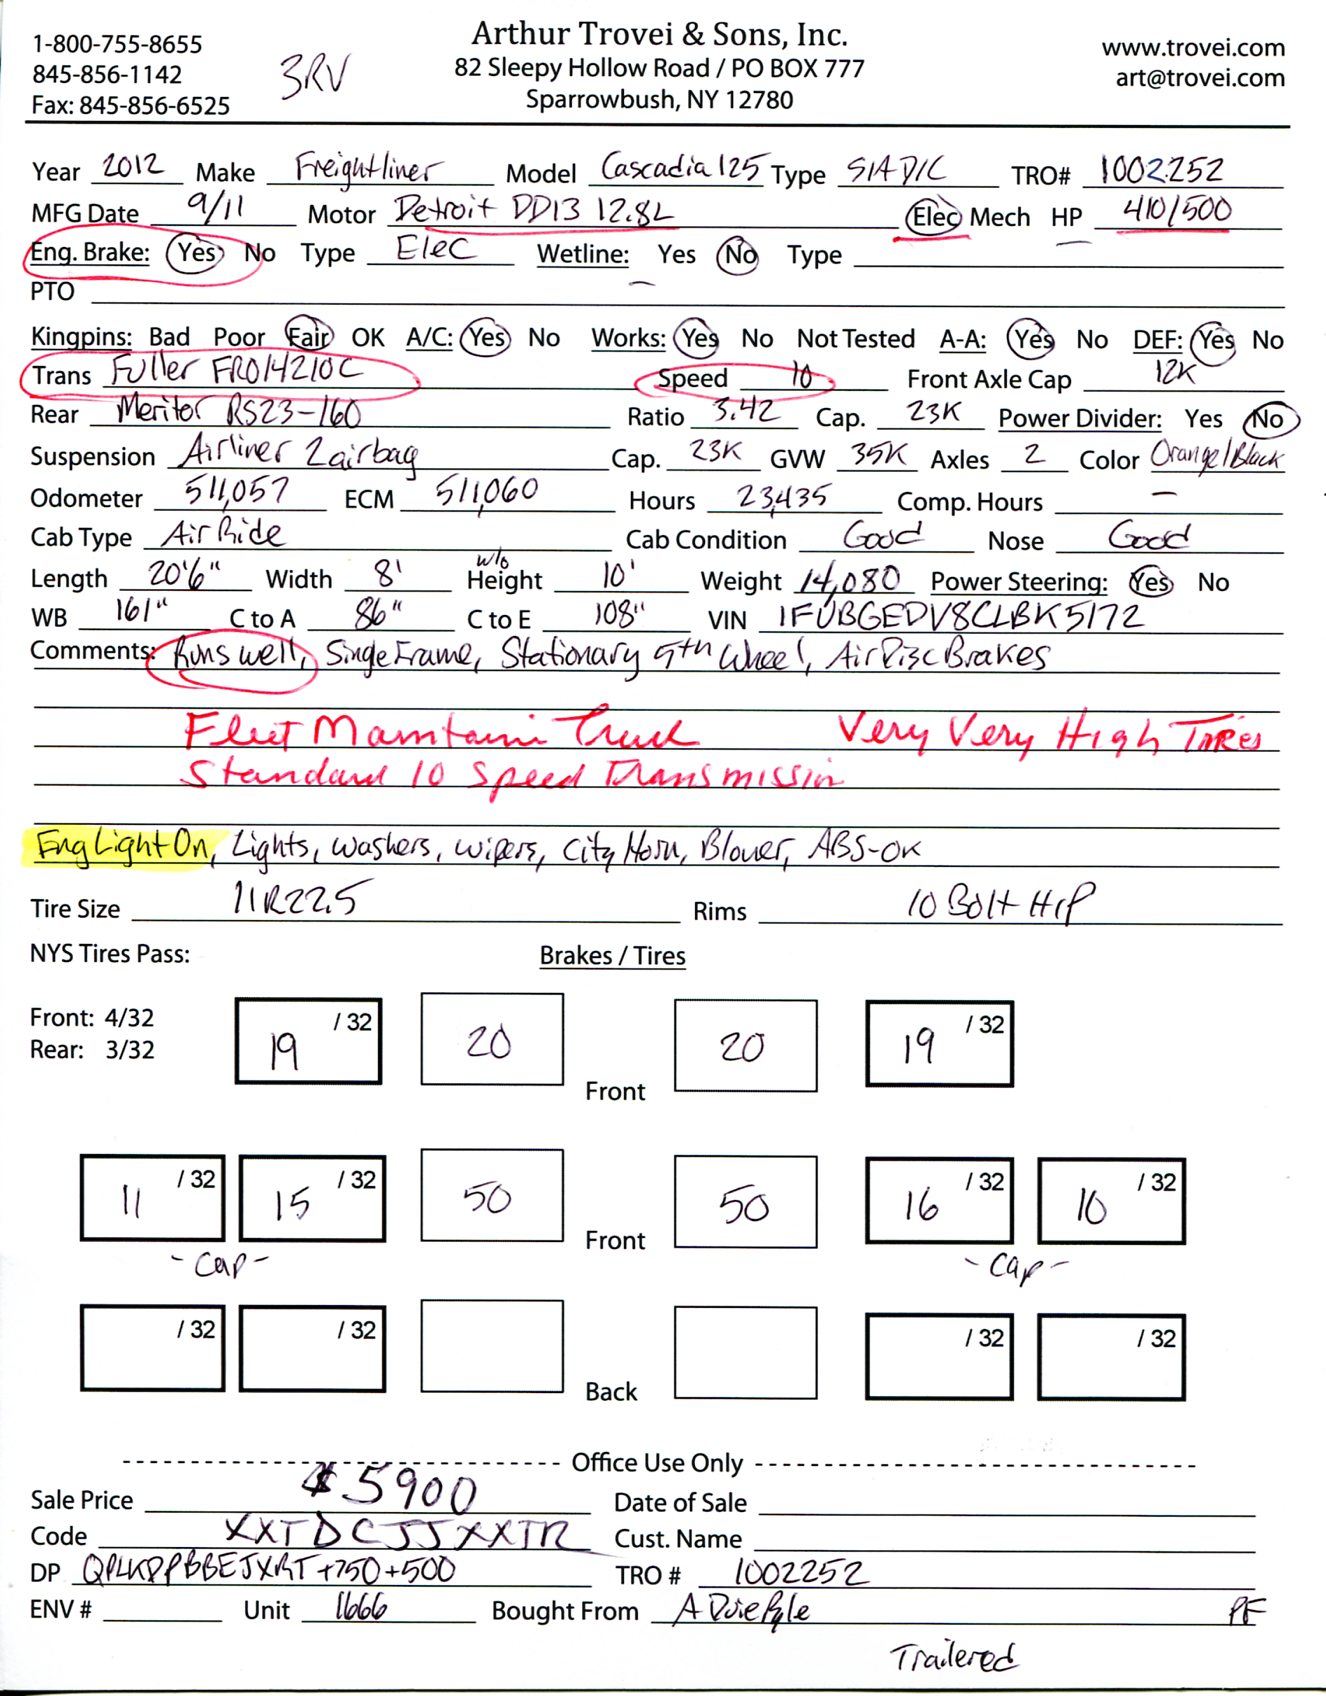 Arthur Trovei & Sons, Inc.
1-800-755-8655
845-856-1142
Fax: 845-856-6525
3RV
82 Sleepy Hollow Road / PO BOX 777
Sparrowbush, NY 12780
www.trovei.com
art@trovei.com
Year 2012 Make Freightliner Model Cascadia 125 Type S/A D/C TRO# 1002252
MFG Date 9/11 Motor Detroit DD13 12.8L Elec Mech HP 410/500
Eng. Brake: Yes No Type Elec Wetline: Yes No Type
PTO
Kingpins: Bad Poor Fair OK A/C: Yes No Works: Yes No Not Tested A-A: Yes No DEF: Yes No
Trans Fuller FRO14210C Speed 10 Front Axle Cap 12K
Rear Meritor RS23-160 Ratio 3.42 Cap. 23K Power Divider: Yes No
Suspension Airliner 2airbag Cap. 23K GVW 35K Axles 2 Color Orange/Black
Odometer 511,057 ECM 511,060 Hours 23,435 Comp. Hours —
Cab Type Air Ride Cab Condition Good Nose Good
Length 20'6" Width 8' w/o Height 10' Weight 14,080 Power Steering: Yes No
WB 161" C to A 86" C to E 108" VIN 1FUBGEDV8CLBK5172
Comments: Runs well, Singe Frame, Stationary 5th Wheel, Air Disc Brakes
Fleet Maintain Truck Very Very High Tires
Standard 10 Speed Transmission
Eng Light On, Lights, Washers, Wipers, City Horn, Blower, ABS-OK
Tire Size 11R22.5 Rims 10 Bolt H/P
NYS Tires Pass: Brakes / Tires
Front: 4/32
Rear: 3/32
19 /32 20 Front 20 19 /32
11 /32 15 /32 50 Front 50 16 /32 10 /32
- Cap - - Cap -
/32 /32 Back /32 /32
Office Use Only
Sale Price $5900 Date of Sale
Code XXTDCJJXXTR Cust. Name
DP +750+500 TRO # 1002252
ENV # Unit 1666 Bought From A Duie Pyle PF
Trailered